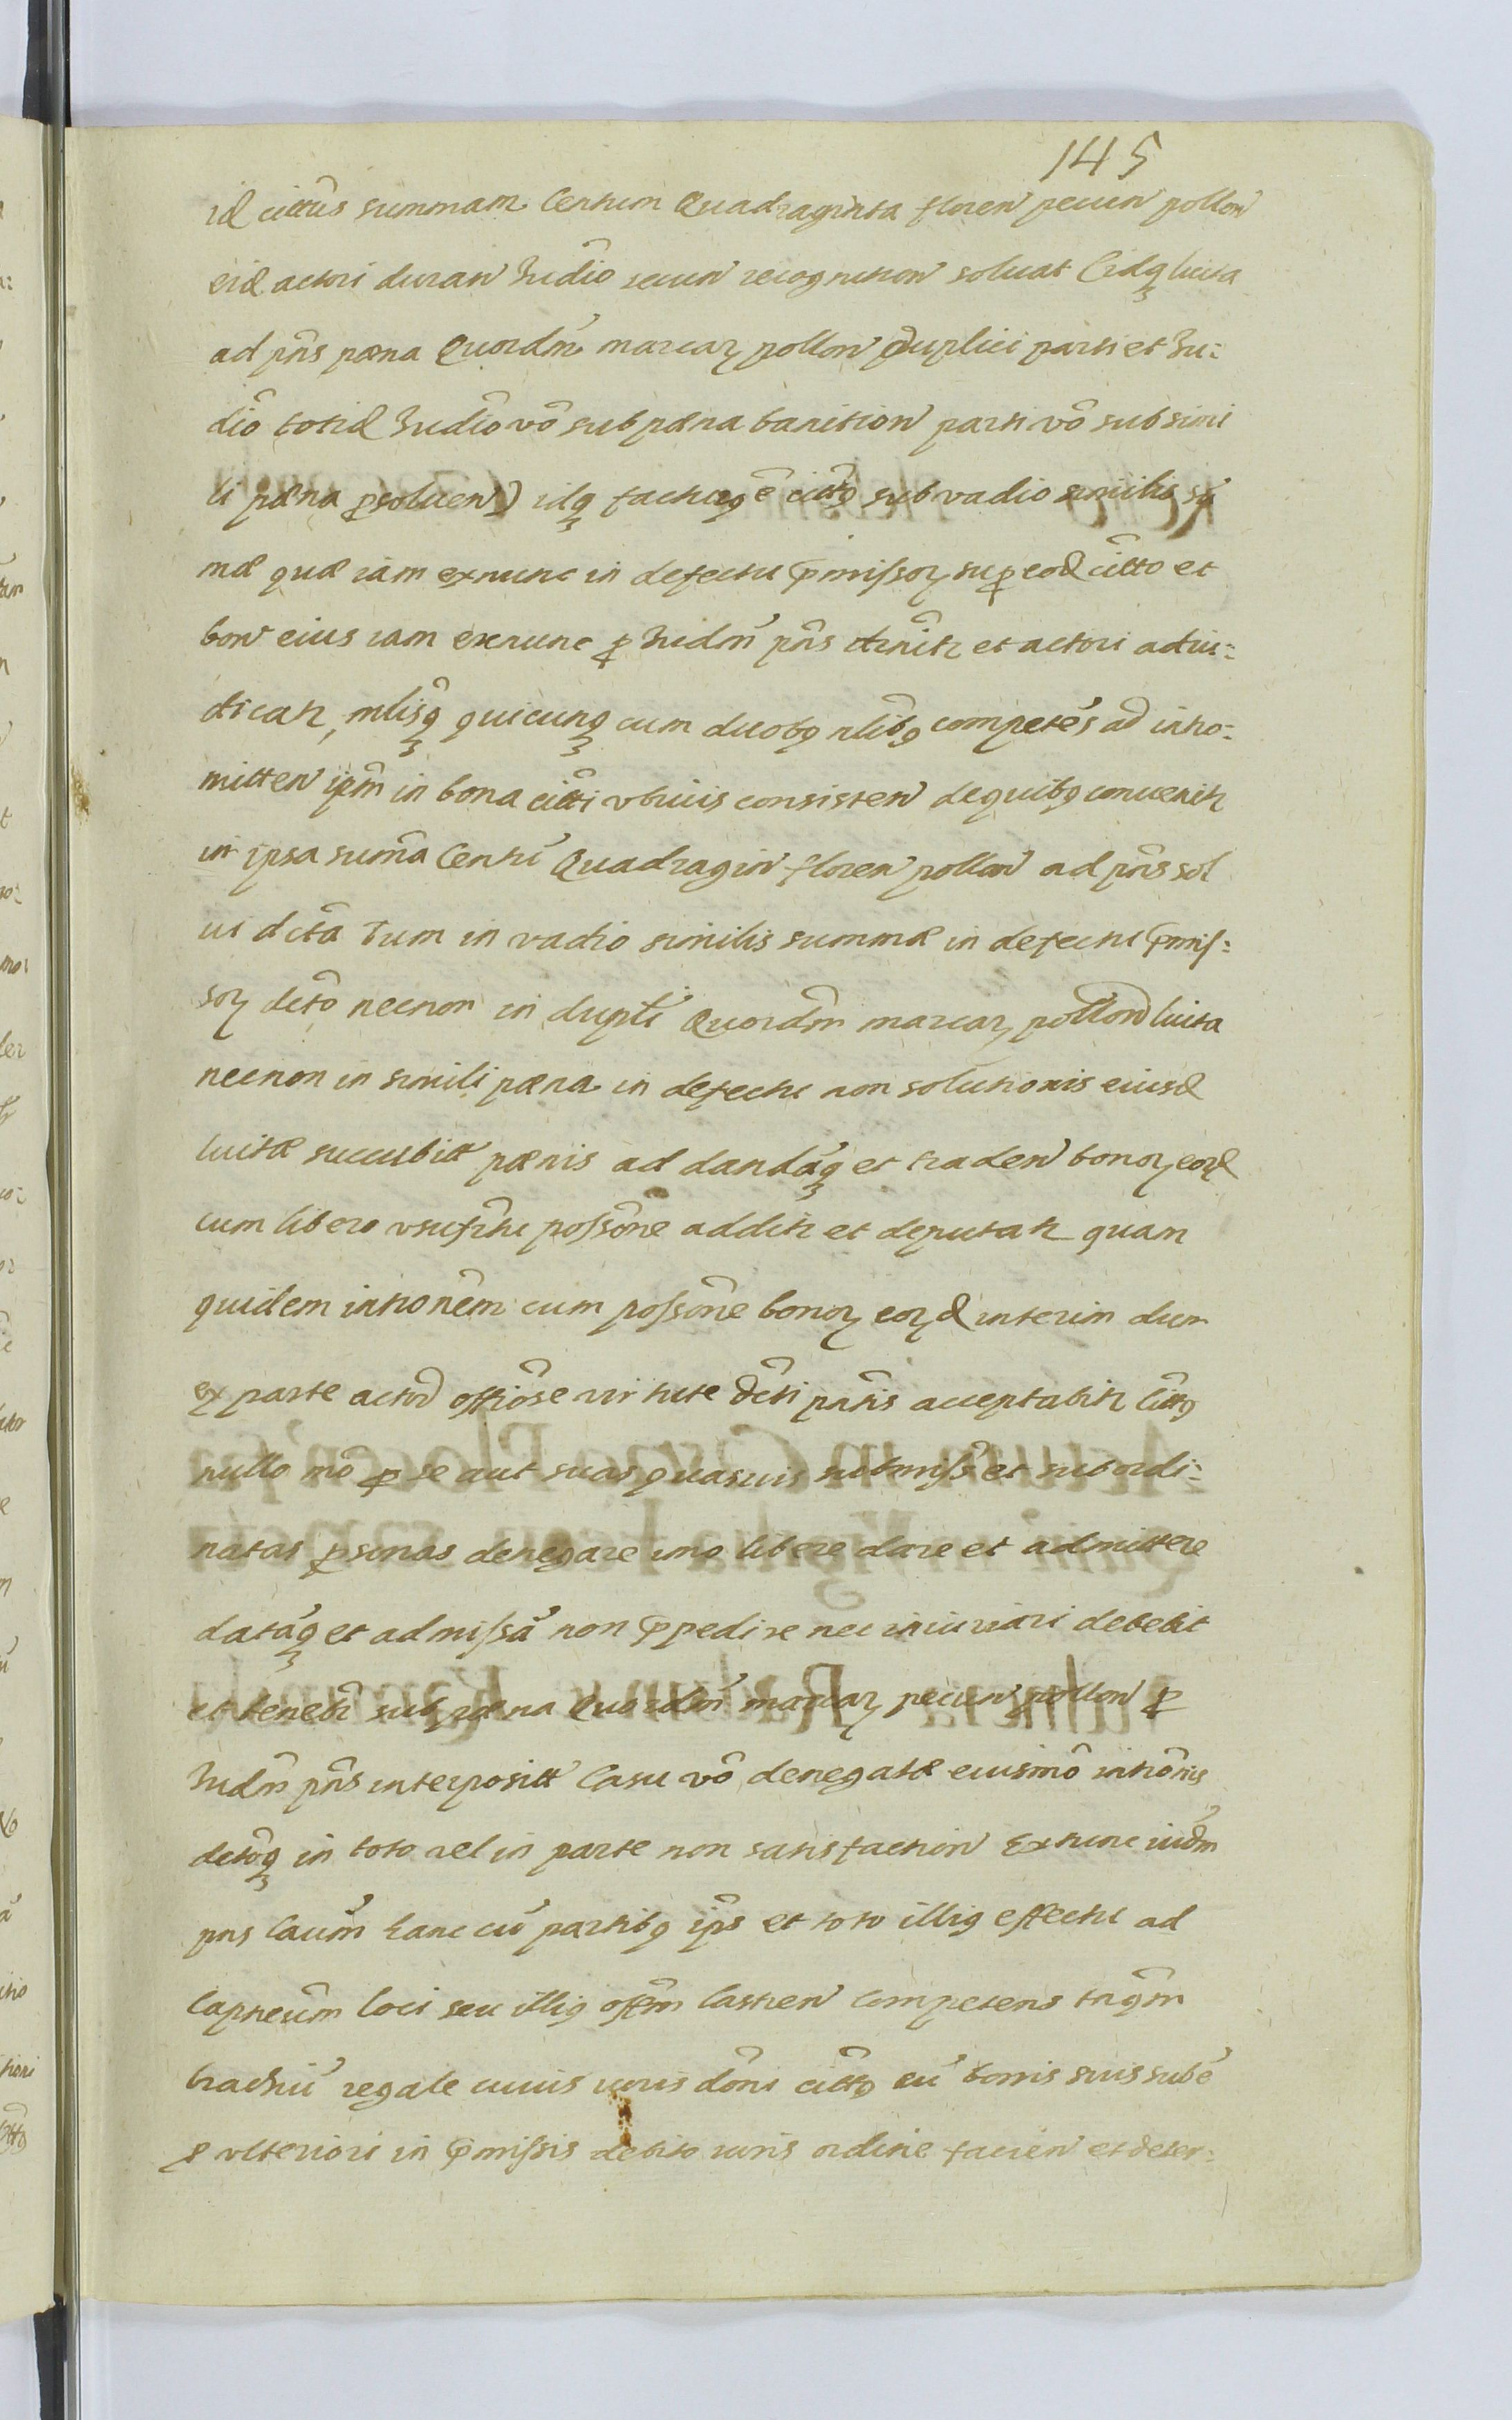 145
id cittus summam Centum Quadraginta floren pecun pollon
eid actori duran Judio secun recognition soluat Cidq luita
ad pns pæna Quordm marcar pollon duplici parti et Ju:
dio totid Judio vo sub pæna banition parti vo sub simi
li pæna psoluen) idq facturq e cittq sub vadio similis su
mæ quæ iam exnunc in defectu pmissor sup eod citto et
bon eius iam exnunc p Judm pns et actori adiu:
dicatr, mlisq quicunq cum duobq nlibq competes ad intro:
mitten ipm in bona citti vbiuis consisten de quibq conuenitr
in ipsa suma Centu Quadragin floren pollon ad pns sol
ui dcta Tum in vadio similis summæ in defectu pmis:
sor dcto necnon in dupli Quordm marcar pollon luita
necnon in simili pæna in defectu non solutionis eiusd
luitæ succubitt pænis ad dandaq et traden bonor eord
cum libero vsufrtu possone additr et deputatr quam
quidem intronem cum possone bonor eord interim dum
ex parte actor offiose virtute dcti pntis acceptabitr cittq
nullo mo p se aut suas quasuis submiss et subordi:
natas psonas denegare imo libere dare et admittere
dataq et admissa non ppedire nec iniuriari debebit
et tenebr sub pæna Quordm marcar pecun pollon p
Judm pns interpositt Casu vo denegatæ eiusmo intronis
dctoq in toto vel in parte non satisfaction Exnunc iudm
pns Caum hanc cu partibq ips et toto illiq effectu ad
Capneum loci seu illiq offm Castren competens tnqm
brachiu regale cuiuis iuris doni cittq cu bonis suis sube
p vlteriori in pmissis debito iuris ordine facien et deter: